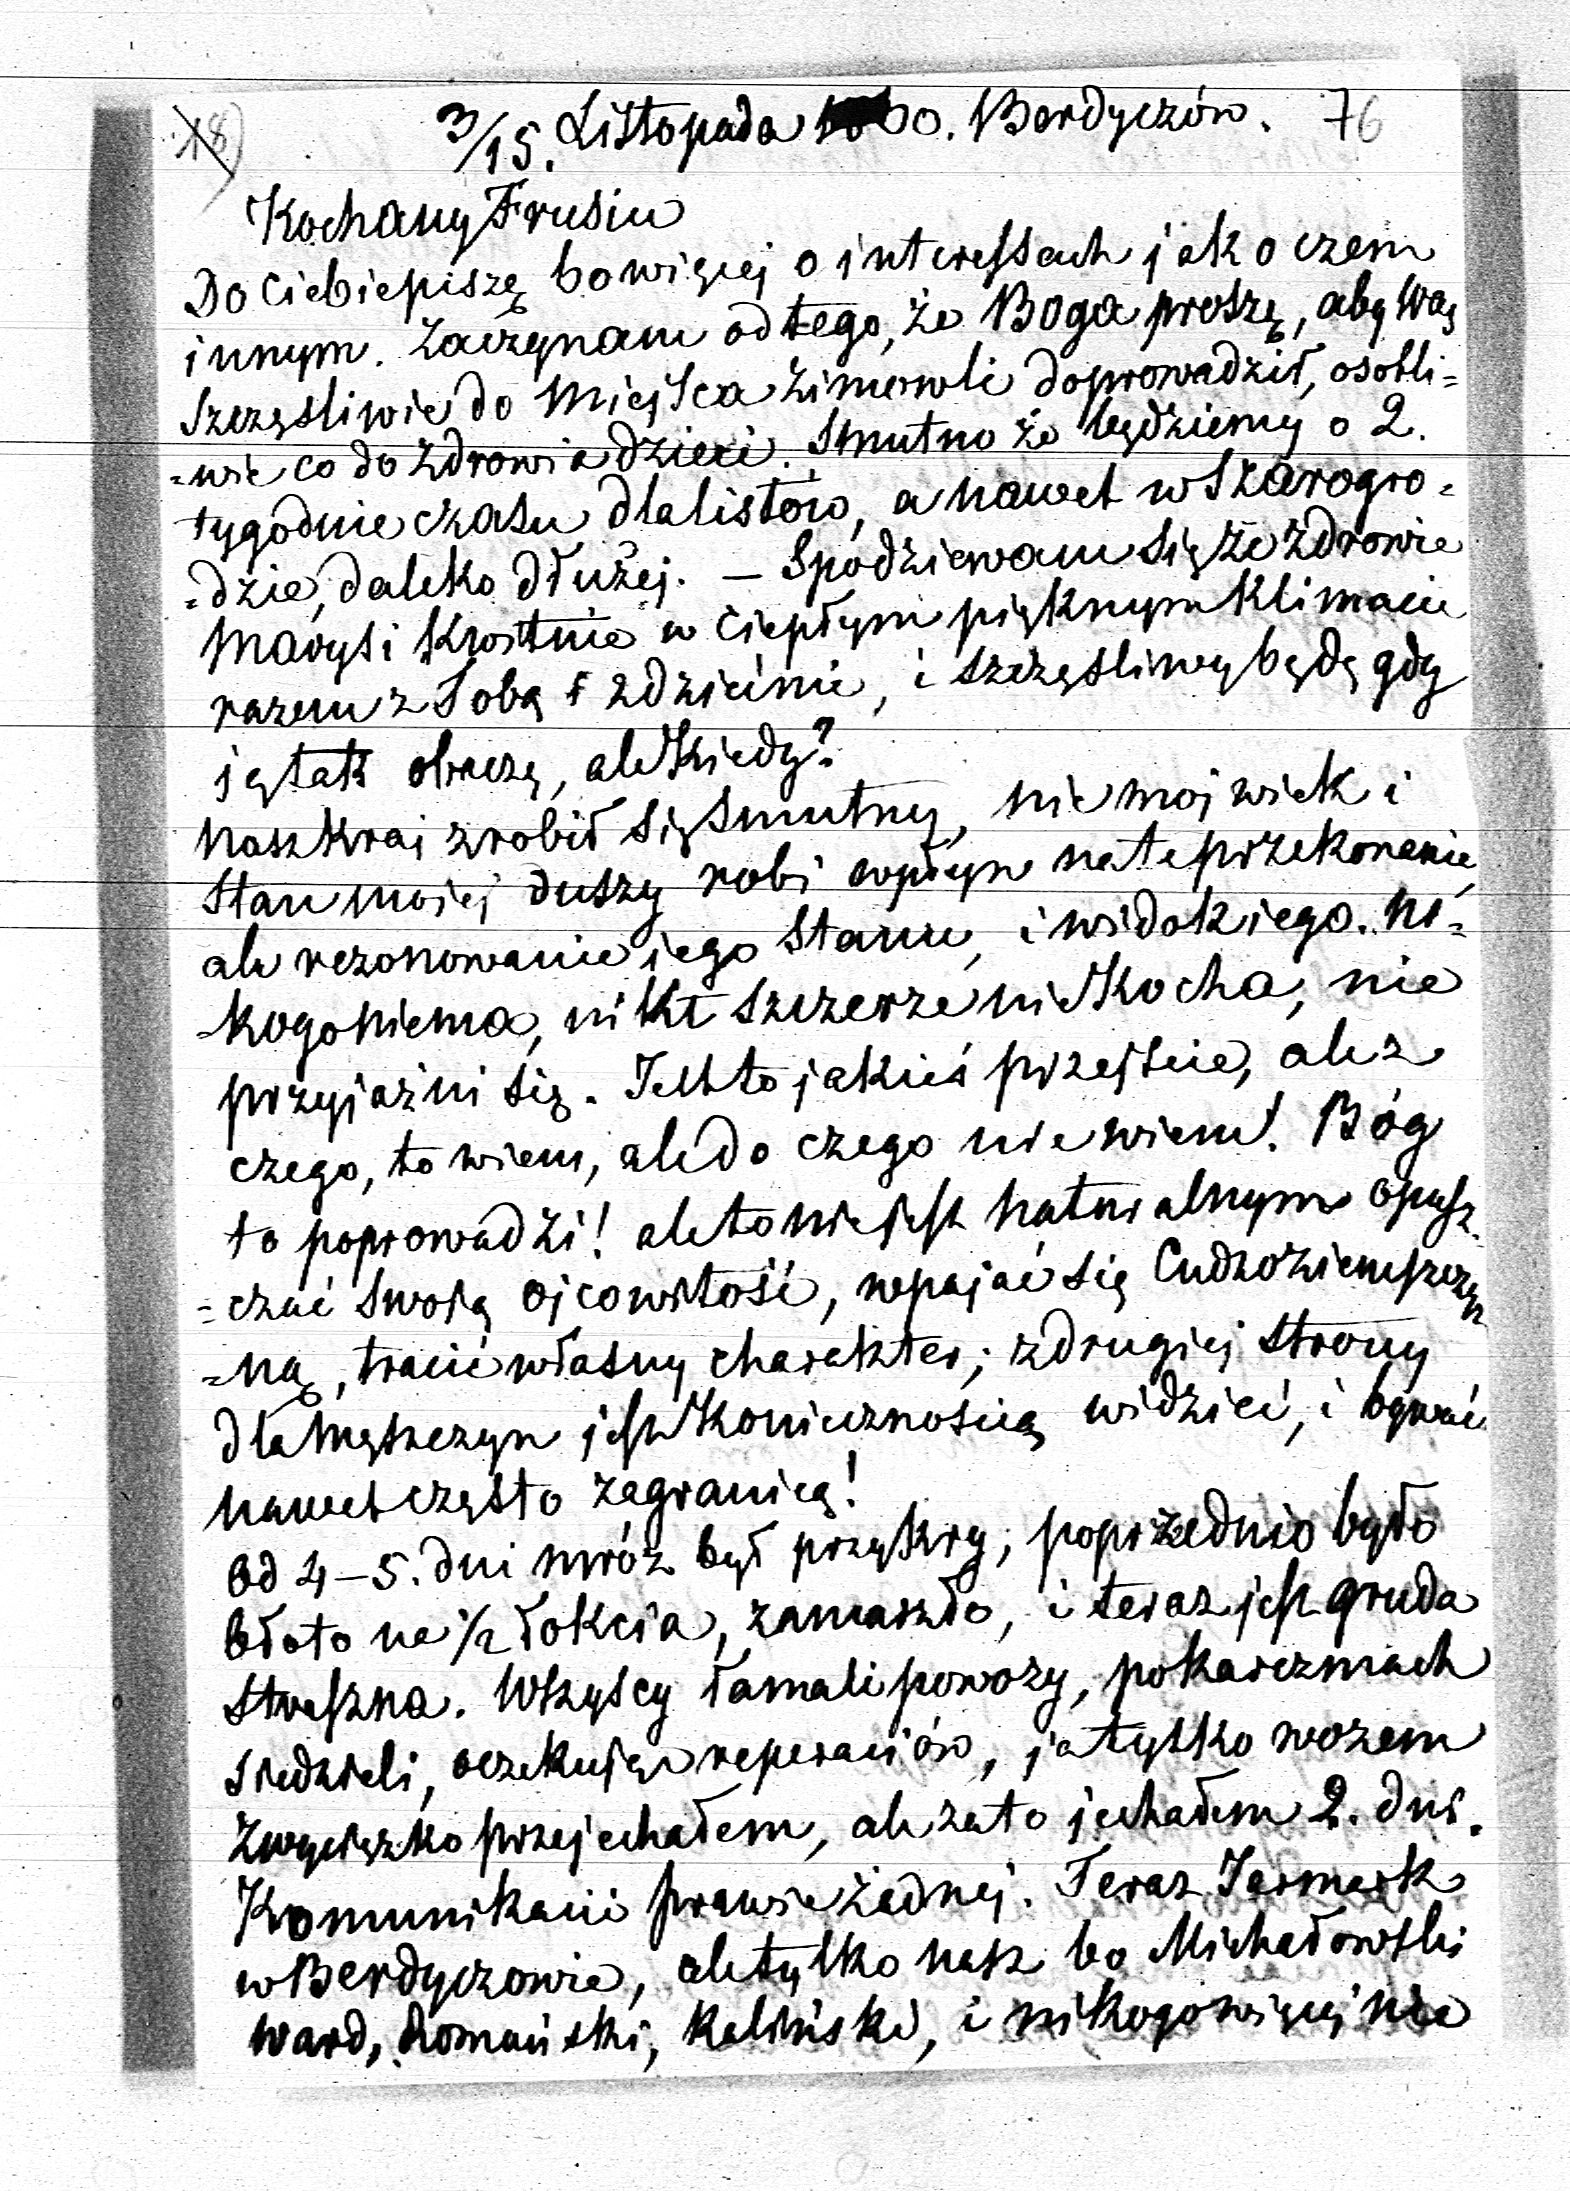 18)
3/15. Listopada 1860. Berdyczów. 76
Kochany Frusiu
Do Ciebie piszę bo więcej o interessach jak o czem
innym. Zaczynam od tego, że Boga proszę, aby Was
szczęśliwie do Miejsca zimowli doprowadził, osobli=
=wie co do zdrowia dzieci. Smutno że będziemy o 2.
tygodnie czasu dla listów, a nawet w Szarogro=
=dzie, daleko dłużej. – Spodziewam się że zdrowie
Marysi kwitnie w ciepłym pięknym klimacie
razem z Tobą i 2 dziećmi, i szczęśliwy będę gdy
ją tak obaczę, ale kiedy?
nasz kraj zrobił się smutny, nie moj wiek i
stan mojej duszy robi wpływ na te przekonanie,
ale rezonowanie jego stanu, i widok jego. Ni=
=kogo niema, nikt szczerze nie kocha, nie
przyjaźni się. Jest to jakieś przejście, ale z
czego, to wiem, ale do czego nie wiem! Bóg
to poprowadzi! ale to nie jest naturalnym opusz=
=czać swoją ojcowitość, wpajać się Cudzoziemszczyz
=ną, tracić własny charakter; z drugiej strony
dla mężczyzn jest koniecznością widzieć, i bywać
nawet często zagranicą!
Od 4–5. dni mróz był przykry, poprzednio było
błoto na 1/2 łokcia, zamarzło, i teraz jest gruda
straszna. Wszyscy łamali powozy, po karczmach
siedzieli, oczekując reperaciów, ja tylko wozem
zwycięzko przejechałem, ale za to jechałem 2. dni.
Komunikacii prawie żadnej. Teraz Jarmark
w Berdyczowie, ale tylko nasz bo Michałowski
Ward, Romański, Kaliński, i nikogo więcej nie